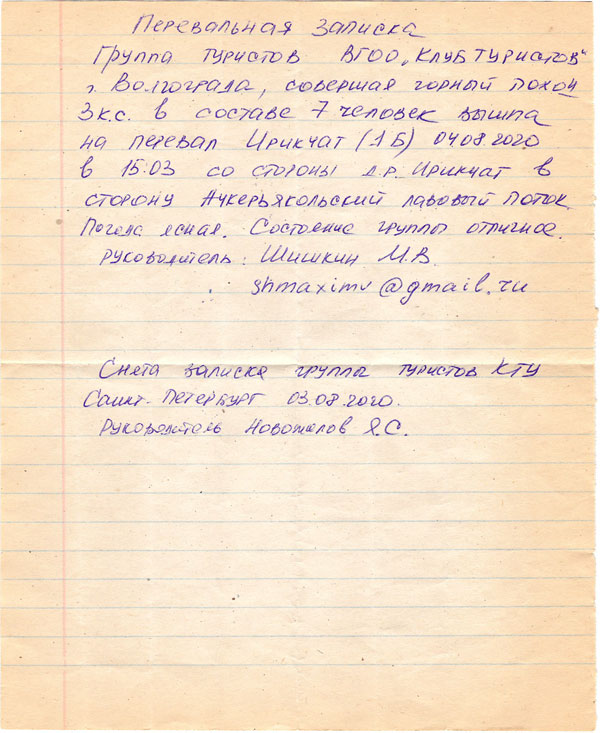 Перевальная записка
Группа туристов ВГОО „Клуб туристов"
г. Волгограда, совершая горный поход
3 к.с. в составе 7 человек вышла
на перевал Ирикчат (1Б) 04.08.2020
в 15.03 со стороны д.р. Ирикчат в
сторону Ачкерьякольский лавовый поток.
Погода ясная. Состояние группы отличное.
Руководитель: Шишкин М.В.
shmaximv@gmail.ru
Снята записка группы туристов КТУ
Санкт-Петербург 03.08.2020.
Руководитель Новожилов Я.С.